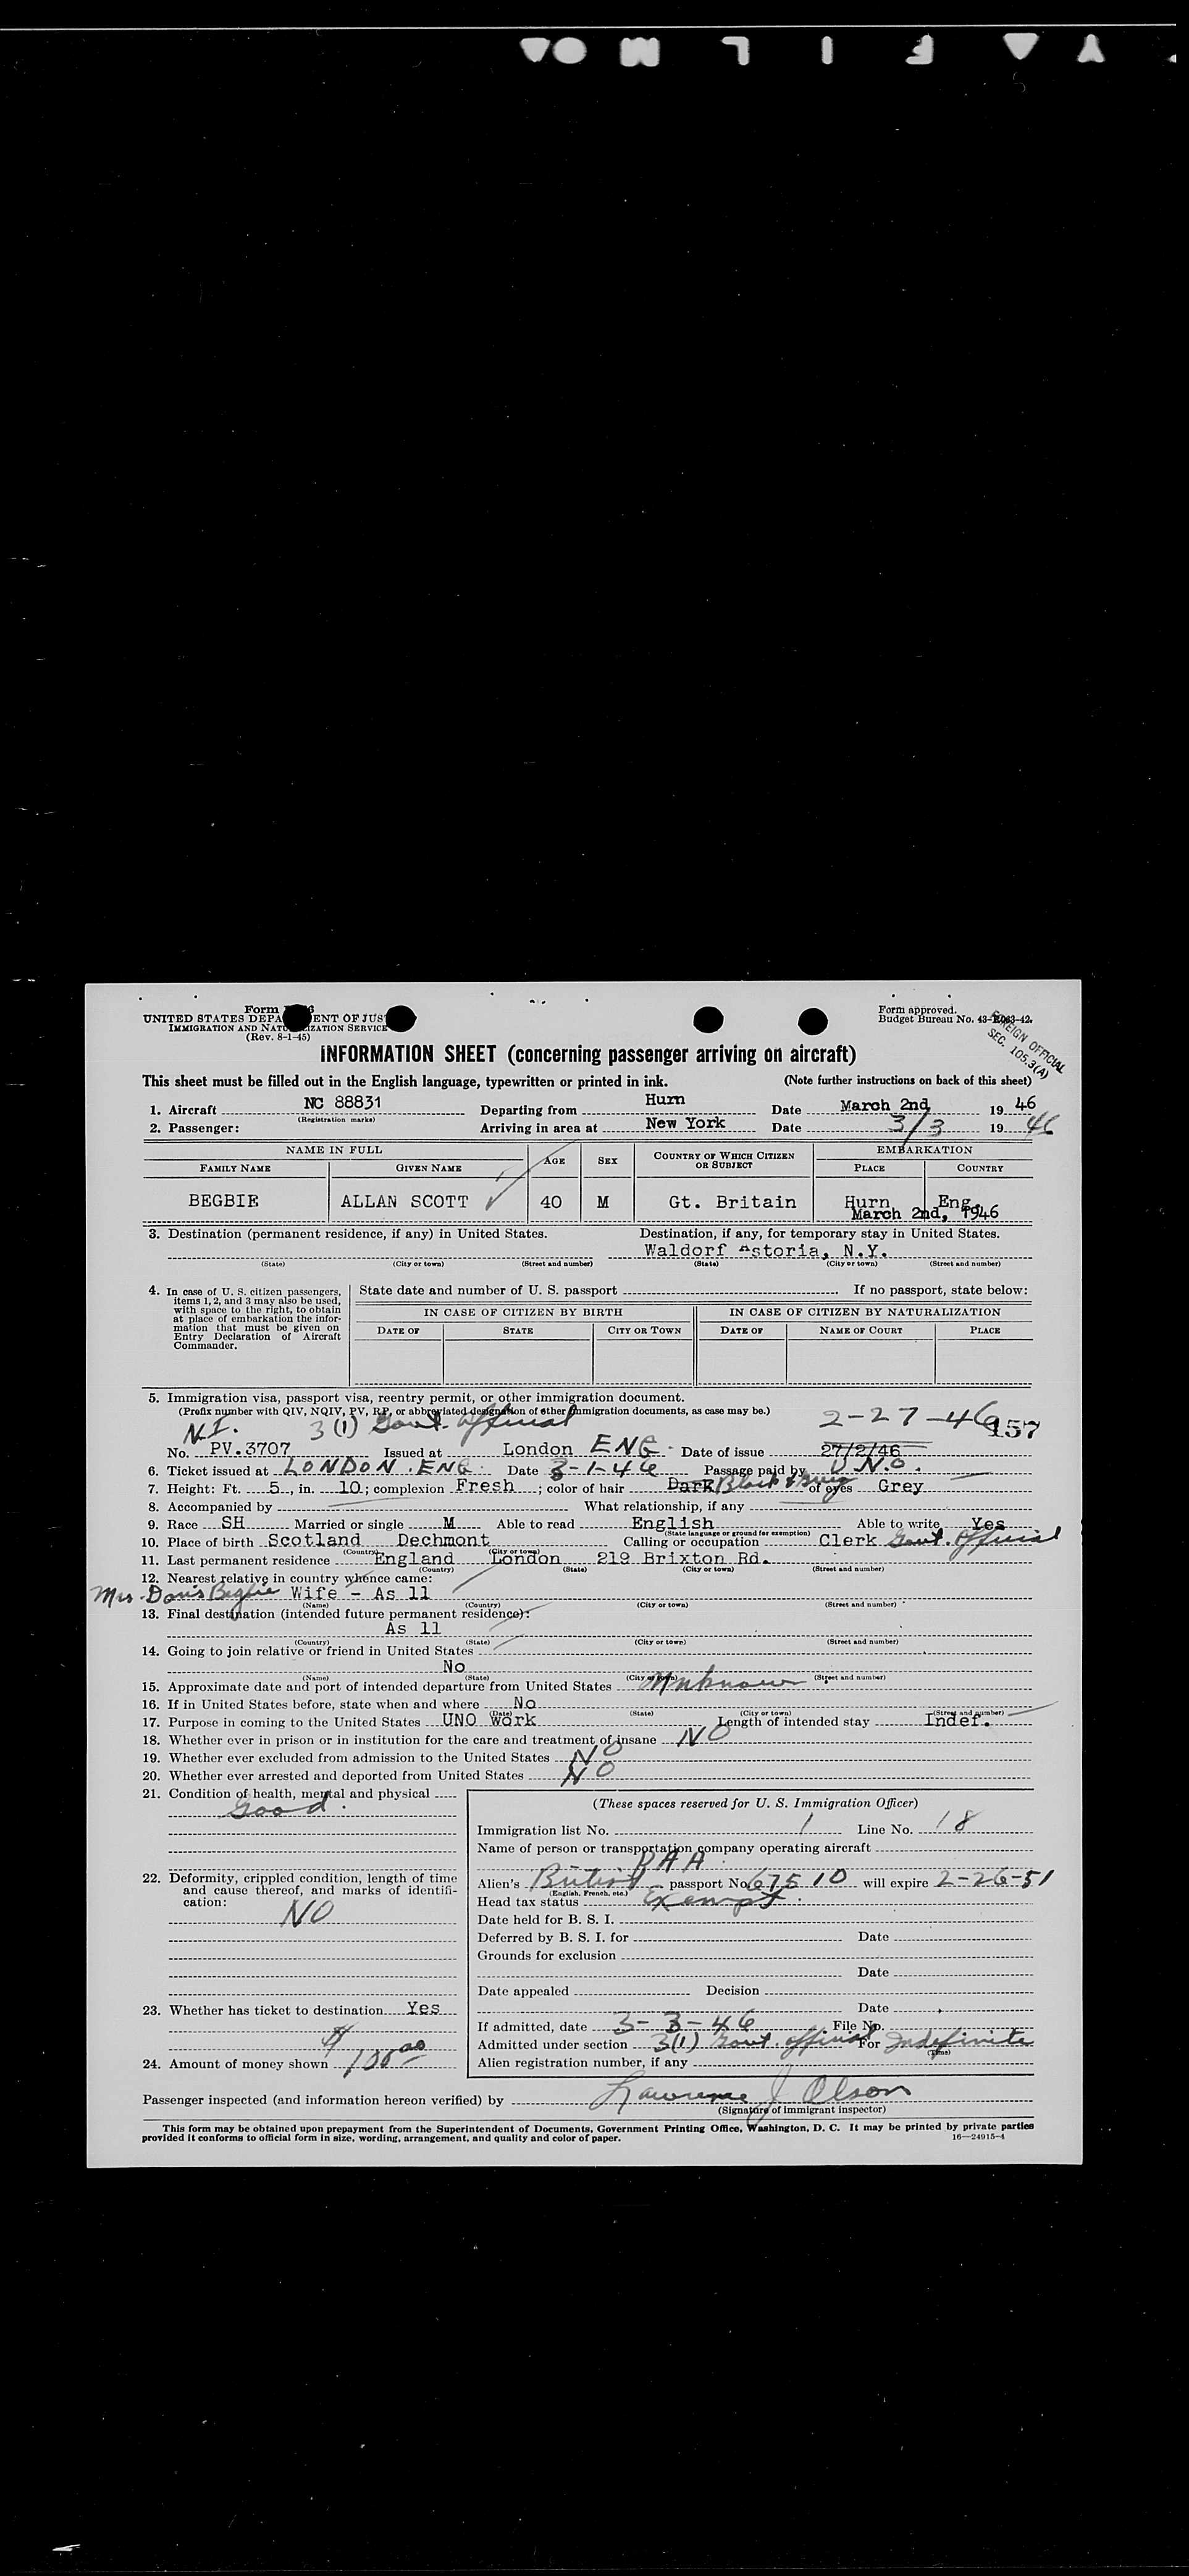 Form
UNITED STATES DEPA ENT OF JUS
IMMIGRATION AND NATU IZATION SERVICE
(Rev. 8-1-45)
Form approved.
Budget Bureau No. 43-R063-42.
FOREIGN OFFICIAL
SEC. 105.3(A)
INFORMATION SHEET (concerning passenger arriving on aircraft)
This sheet must be filled out in the English language, typewritten or printed in ink. (Note further instructions on back of this sheet)
1. Aircraft NC 88831 Departing from Hurn Date March 2nd 19 46
(Registration marks)
2. Passenger: Arriving in area at New York Date 3/3 19 46
NAME IN FULL AGE SEX COUNTRY OF WHICH CITIZEN OR SUBJECT EMBARKATION
FAMILY NAME GIVEN NAME PLACE COUNTRY
BEGBIE ALLAN SCOTT 40 M Gt. Britain Hurn Eng.
March 2nd, 1946
3. Destination (permanent residence, if any) in United States. Destination, if any, for temporary stay in United States.
Waldorf Astoria, N.Y.
(State) (City or town) (Street and number) (State) (City or town) (Street and number)
4. In case of U. S. citizen passengers, items 1, 2, and 3 may also be used, with space to the right, to obtain at place of embarkation the information that must be given on Entry Declaration of Aircraft Commander.
State date and number of U. S. passport If no passport, state below:
IN CASE OF CITIZEN BY BIRTH IN CASE OF CITIZEN BY NATURALIZATION
DATE OF STATE CITY OR TOWN DATE OF NAME OF COURT PLACE
5. Immigration visa, passport visa, reentry permit, or other immigration document.
(Prefix number with QIV, NQIV, PV, RP, or abbreviated designation of other immigration documents, as case may be.)
N.I. 3(1) Govt. Official 2-27-46 157
No. PV.3707 Issued at London ENG. Date of issue 27/2/46
6. Ticket issued at LONDON. ENG. Date 3-1-46 Passage paid by U.N.O.
7. Height: Ft. 5, in. 10; complexion Fresh; color of hair Dark Black & Grey of eyes Grey
8. Accompanied by What relationship, if any
9. Race SH Married or single M Able to read English Able to write Yes
(State language or ground for exemption)
10. Place of birth Scotland Dechmont Calling or occupation Clerk Govt. Official
(Country) (City or town)
11. Last permanent residence England London 219 Brixton Rd.
(Country) (State) (City or town) (Street and number)
12. Nearest relative in country whence came:
Mrs. Doris Begbie Wife - As 11
(Name) (Country) (City or town) (Street and number)
13. Final destination (intended future permanent residence):
As 11
(Country) (State) (City or town) (Street and number)
14. Going to join relative or friend in United States
No
(Name) (State) (City or town) (Street and number)
15. Approximate date and port of intended departure from United States Unknown
16. If in United States before, state when and where No
(Date) (State) (City or town) (Street and number)
17. Purpose in coming to the United States UNO work Length of intended stay Indef.
18. Whether ever in prison or in institution for the care and treatment of insane NO
19. Whether ever excluded from admission to the United States NO
20. Whether ever arrested and deported from United States NO
21. Condition of health, mental and physical
Good.
22. Deformity, crippled condition, length of time and cause thereof, and marks of identification:
NO
23. Whether has ticket to destination Yes
24. Amount of money shown $100.00
(These spaces reserved for U. S. Immigration Officer)
Immigration list No. 1 Line No. 18
Name of person or transportation company operating aircraft
PAA
Alien's British passport No. 67510 will expire 2-26-51
(English, French, etc.)
Head tax status Exempt.
Date held for B. S. I.
Deferred by B. S. I. for Date
Grounds for exclusion
Date
Date appealed Decision
Date
If admitted, date 3-3-46 File No.
Admitted under section 3(1) Govt. official For Indefinite
(Time)
Alien registration number, if any
Passenger inspected (and information hereon verified) by Lawrence J Olson
(Signature of immigrant inspector)
This form may be obtained upon prepayment from the Superintendent of Documents, Government Printing Office, Washington, D. C. It may be printed by private parties
provided it conforms to official form in size, wording, arrangement, and quality and color of paper. 16—24915-4